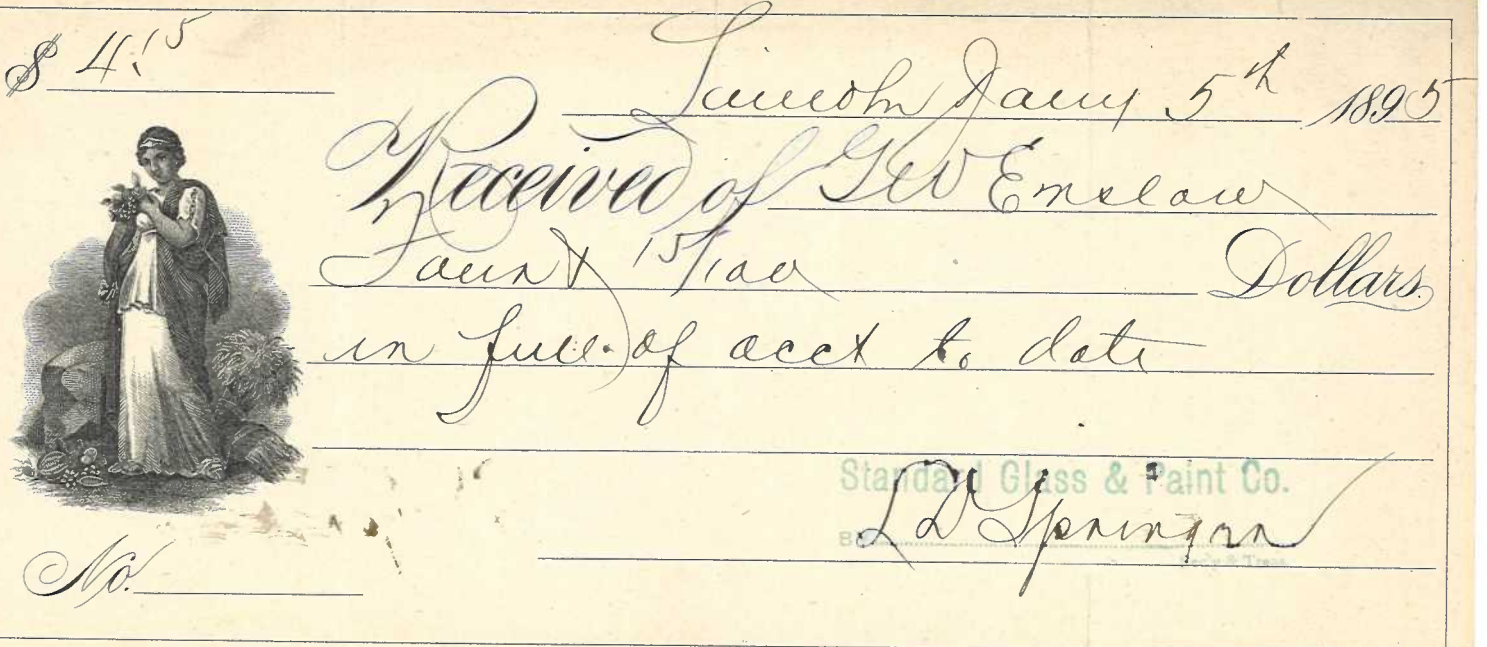 $ 4.15
Lincoln Jany 5th 1895
Received of Geo Emslaw
Four & 15/100 Dollars.
in full of acct to date
Standard Glass & Paint Co.
L D Springer
No.